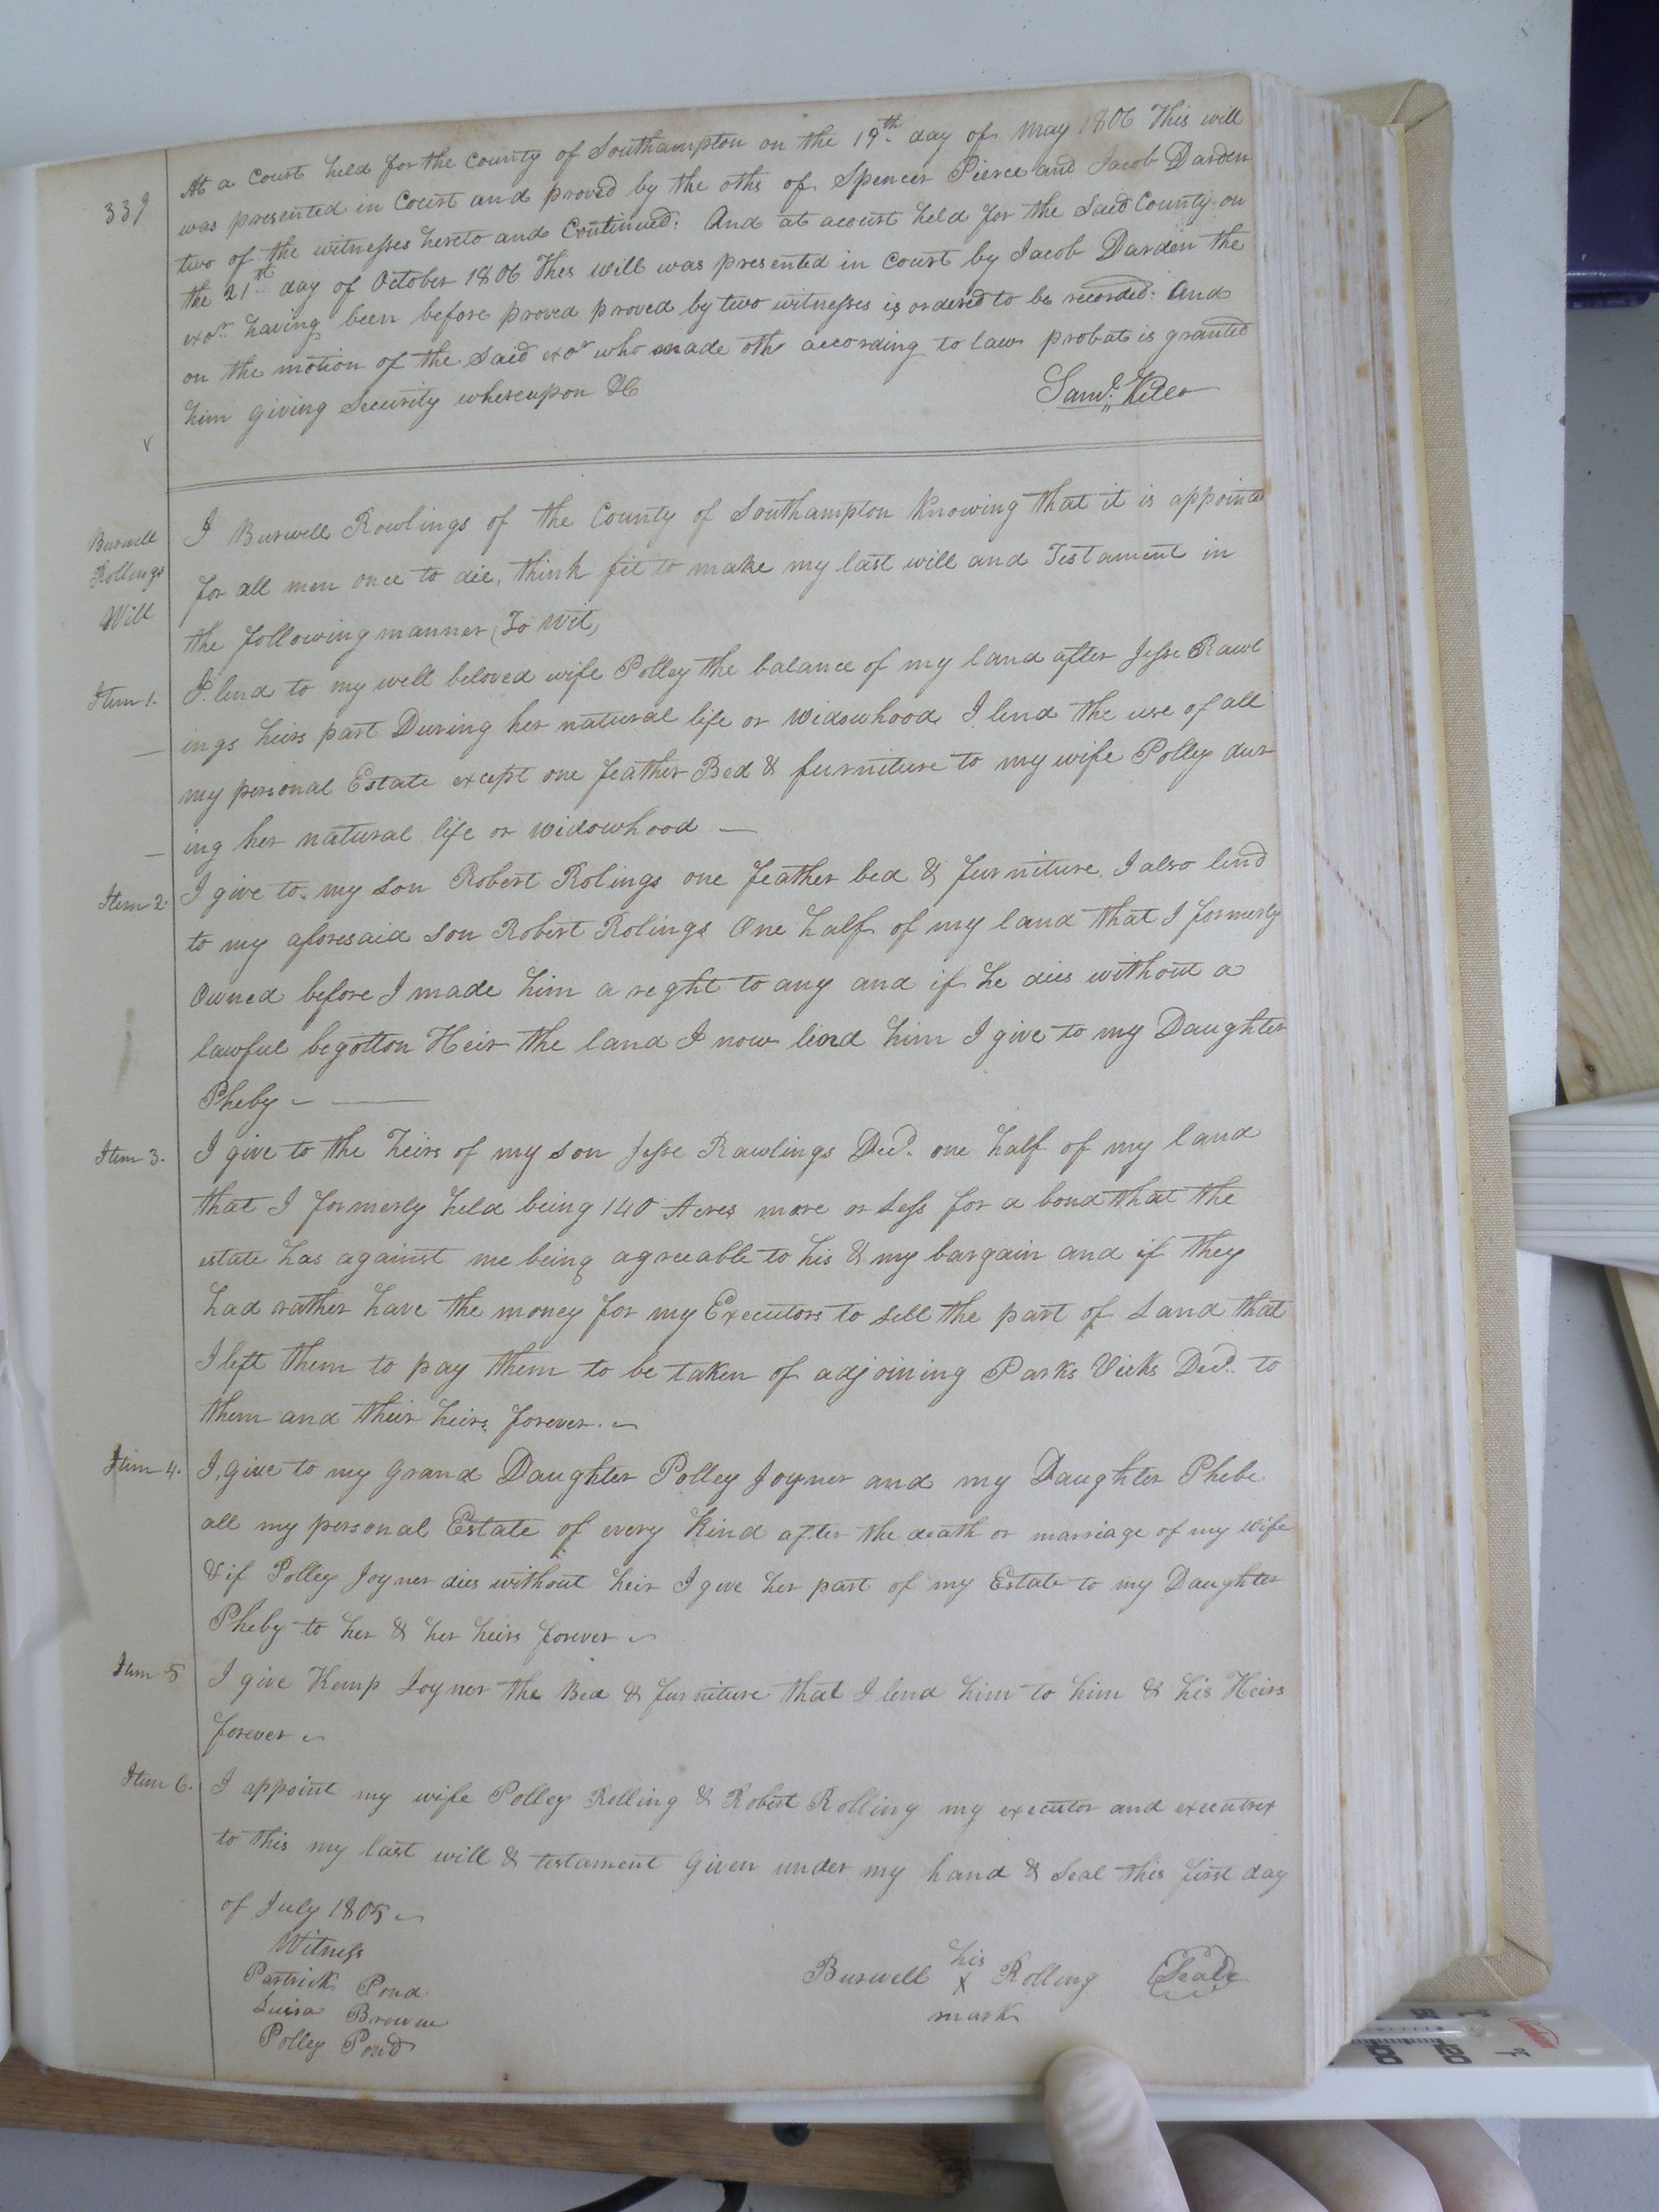 339
At a Court held for the County of Southampton on the 19th day of May 1806 This will
was presented in Court and proved by the oths of Spencer Pierce and Jacob Darden
two of the witnesses hereto and Continued: And at acourt held for the Said County on
the 21st day of October 1806 This will was presented in Court by Jacob Darden the
exor. having been before proved proved by two witnesses is ordered to be recorded: And
on the motion of the Said exor who made oth according to law probat is granted
him giving Security whereupon &C
Saml. Kello
Burwell
Rollings
Will
I Burwell Rowlings of the County of Southampton Knowing that it is appointed
for all men once to die, think fit to make my last will and Testament in
the following manner (To Wit)
Item 1. I lend to my well beloved wife Polley the balance of my land after Jesse Rawl
ings heirs part During her natural life or Widowhood I lend the use of all
my personal Estate except one feather Bed & furniture to my wife Polley dur
ing her natural life or widowhood —
Item 2. I give to my son Robert Rolings one feather bed & furniture. I also lend
to my aforesaid son Robert Rolings One half of my land that I formerly
Owned before I made him a reght to any and if he dies without a
lawful begotton Heir the land I now lend him I give to my Daughter
Pheby — —
Item 3. I give to the heirs of my son Jesse Rawlings Decd. one half of my land
that I formerly held being 140 Acres more or Less for a bond that the
estate has against me being agreeable to his & my bargain and if they
had rather have the money for my Executors to sell the part of Land that
I left them to pay them to be taken of adjoining Parks Vicks Decd. to
them and their heirs forever. ~
Item 4. I give to my Grand Daughter Polley Joyner and my Daughter Phebe
all my personal Estate of every Kind after the death or marriage of my Wife
& if Polley Joyner dies without heir I give her part of my Estate to my Daughter
Pheby to her & her heirs forever ~
Item 5 I give Kemp Joyner the Bed & furniture that I lend him to him & his Heirs
forever ~
Item 6. I appoint my wife Polley Rolling & Robert Rolling my executor and executrex
to this my last will & testament Given under my hand & Seal this first day
of July 1805 ~
Witness
Partrick Pond
Luisa Browne
Polley Pond
his
Burwell X Rolling Seale
mark